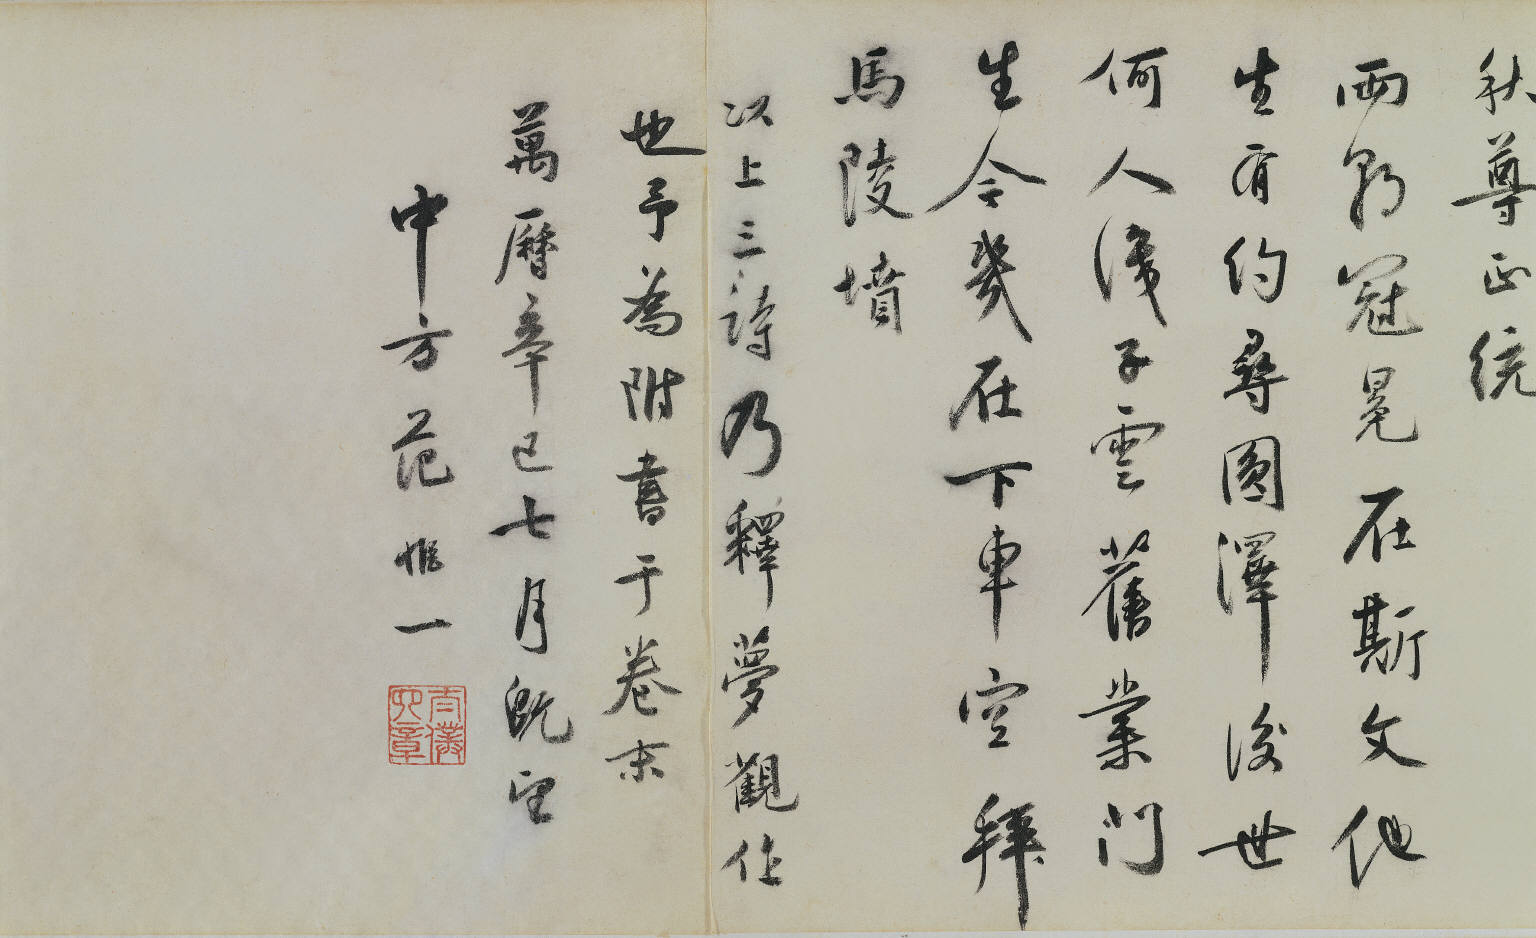 秋尊正統
兩朝冠冕在斯文他
生有約尋圓澤後世
何人識子雲舊業門
生今幾在下車空拜
馬陵墳
以上三詩乃釋夢觀作
也予為附書于卷末
萬曆辛巳七月既望
中方范惟一